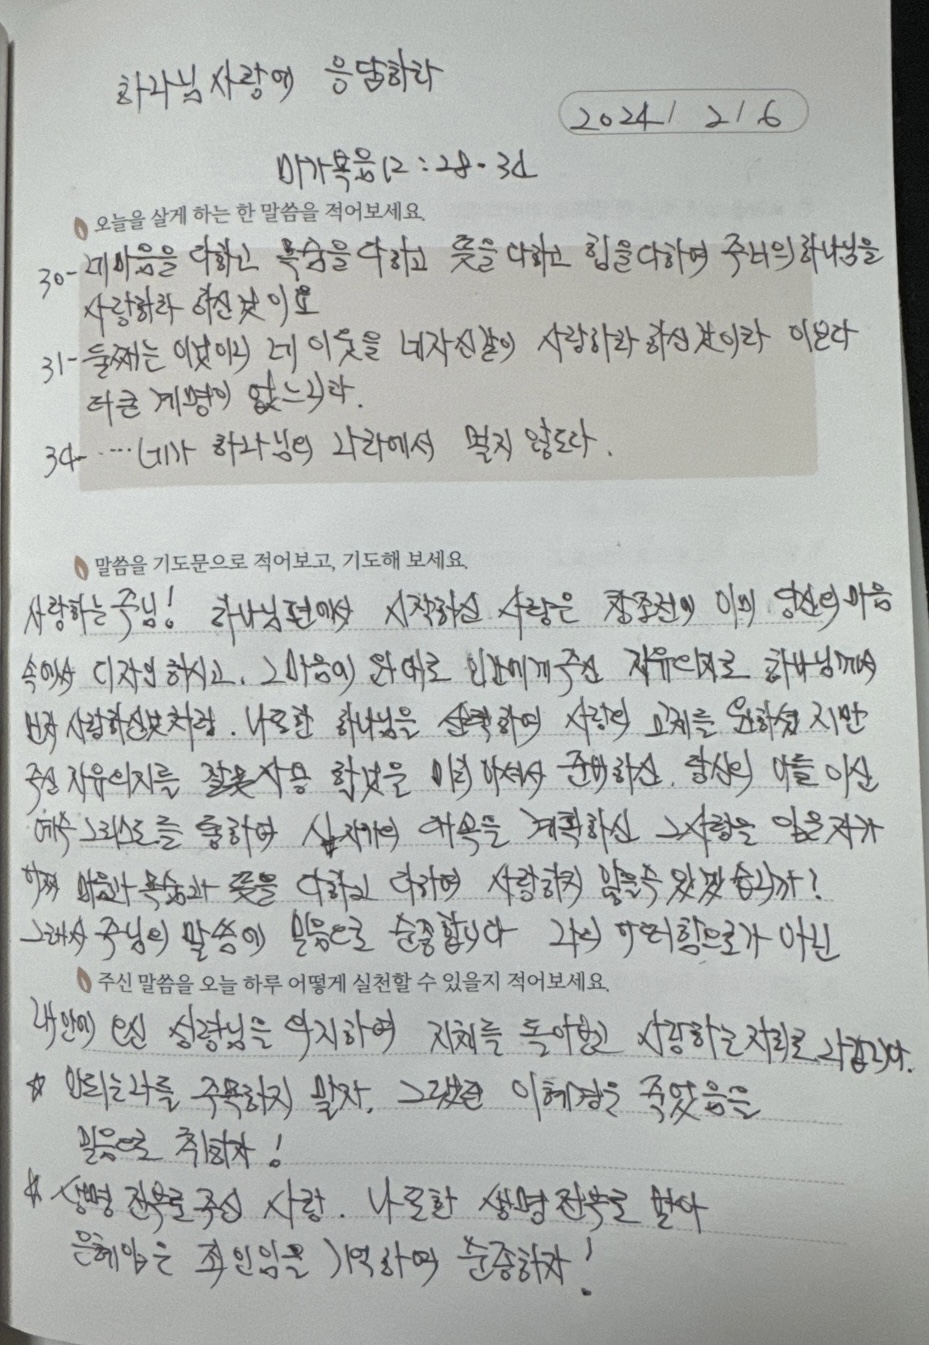 하나님 사랑에 응답하라
2024/ 2/ 6
마가복음12:28-34
오늘을 살게 하는 한 말씀을 적어보세요.
30- 네 마음을 다하고 목숨을 다하고 뜻을 다하고 힘을 다하여 주너의 하나님을
사랑하라 하신것이요
31- 둘째는 이것이니 네 이웃을 네자신같이 사랑하라 하신것이라 이보다
더큰 계명이 없느니라.
34- ....네가 하나님의 나라에서 멀지 않도다.
말씀을 기도문으로 적어보고, 기도해 보세요.
사랑하는 주님! 하나님편에서 시작하신 사랑은 창조전에 이미 당신의 마음
속에서 디자인 하시고, 그 마음이 인간에게 주신 자유의지로 하나님께서
먼저 사랑하신것처럼. 나또한 하나님을 선택하여 사랑의 교제를 원하셨지만
주신 자유의지를 잘못 사용 할것을 미리 아셔서 준비하신. 당신의 아들 이신
예수 그리스도를 통하여 십자가의 대속을 계획하신 그사랑을 입은 자가
어찌 마음과 목숨과 뜻을 다하고 다하여 사랑하지 않을수 있겠습니까?
그래서 주님의 말씀에 믿음으로 순종합니다 나의 아닌
주신 말씀을 오늘 하루 어떻게 실천할 수 있을지 적어보세요.
내안에 오신 성령님을 의지하여 지체를 돌아보고 사랑하는 자리로 나갑니다.
☆ 안되는 나를 주목하지 말자. 그랬던 이혜경은 죽었음을
믿음으로 취하자!
☆ 생명 전부로 주신 사랑. 나또한 생명 전부로 받아
은혜입은 죄인임을 기억하며 순종하자!